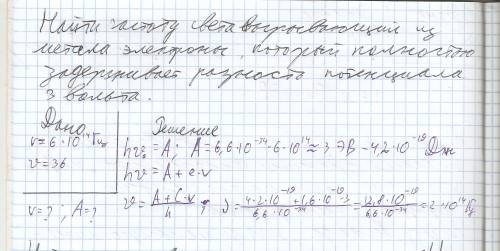 Найти частоту света вырывающий из
метала электроны, который полностью
задерживает разность потенциала
3 вольта.
Дано
ν=6·10¹⁴Гц
v=36
ν=? ; A=?
Решение
hν₀=A; A=6,6·10⁻³⁴·6·10¹⁴≈3 эВ-4,2·10⁻¹⁹Дж
hν=A+e·v
ν=(A+C·v)/h ; ν=(4·2·10⁻¹⁹+1,6·10⁻¹⁹·3)/(6,6·10⁻³⁴)=(12,8·10⁻¹⁹)/(6,6·10⁻³⁴)=2·10¹⁴Гц